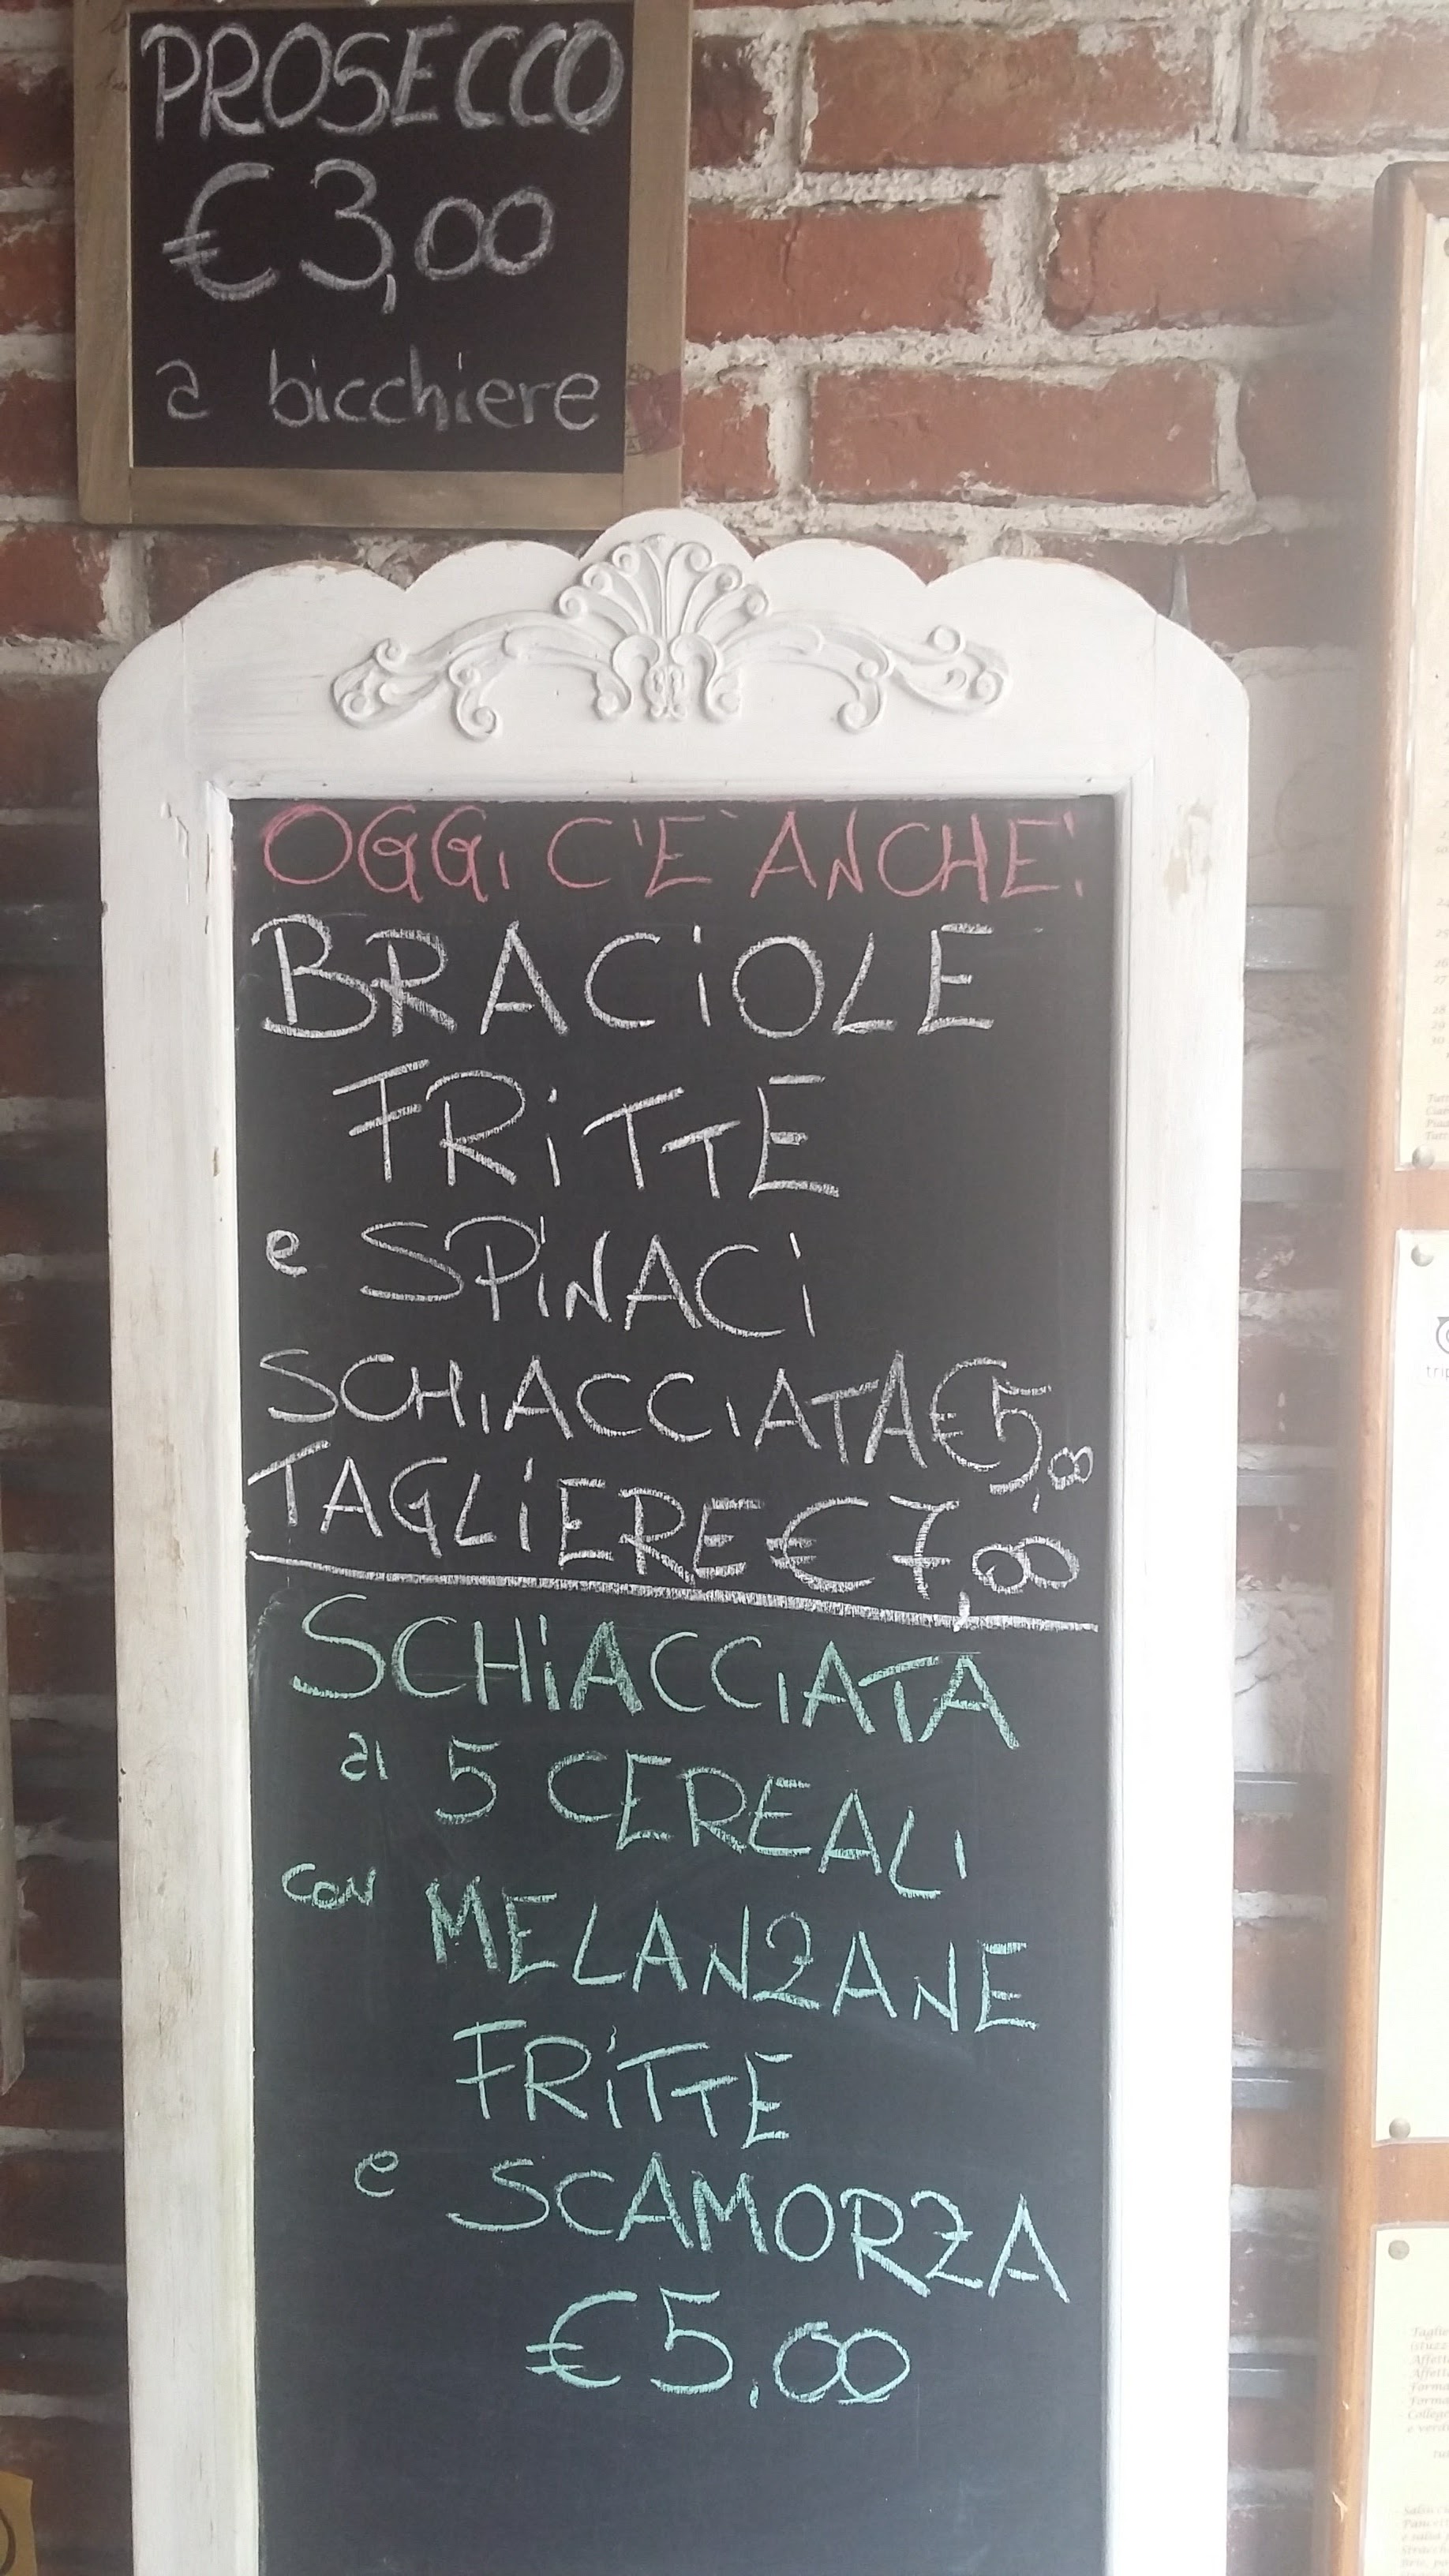 PROSECCO
€3,00
a bicchiere
OGGI C'E' ANCHE:
BRACIOLE
FRITTE
e SPINACI
SCHIACCIATA €5,00
TAGLIERE €7,00
SCHIACCIATA
ai 5 CEREALI
con MELANZANE
FRITTE
e SCAMORZA
€5,00